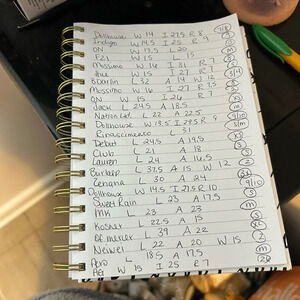 Dollhouse W 14 I 27.5 R 8 7/8
Indigo W 14.5 I 25 R 9
ON W 17.5 L 20
PZI W 15 L 15
Massimo W 16 I 31 R 7
Hue W 15 I 27 R 7
Boorlin L 32 A 14 W 12 3/4
Massimo W 16 I 27 R 7.5
ON W 15 I 26
Jack L 24.5 A 18.5
Nation Ltd L 22 A 22.5
Dollhouse W 13.5 I 27.5 R 9 9/10
Rinascimento L 31 S/M
Debut L 24.5 A 19.5
Club L 21 A 18
Lauren L 24 A 16.5
Burlapp L 37.5 A 15 W 12
Zenana L 30 A 24
Dollhouse W 14.5 I 27.5 R 10 9/10
Sweet Rain L 23 A 17.5
MK L 23 A 23
Kosher L 22.5 A 15
Of mercer L 39 A 22
Neiwei L 22 A 20 W 15
Aero L 18.5 A 17.5
AG W 15 I 25 R 7